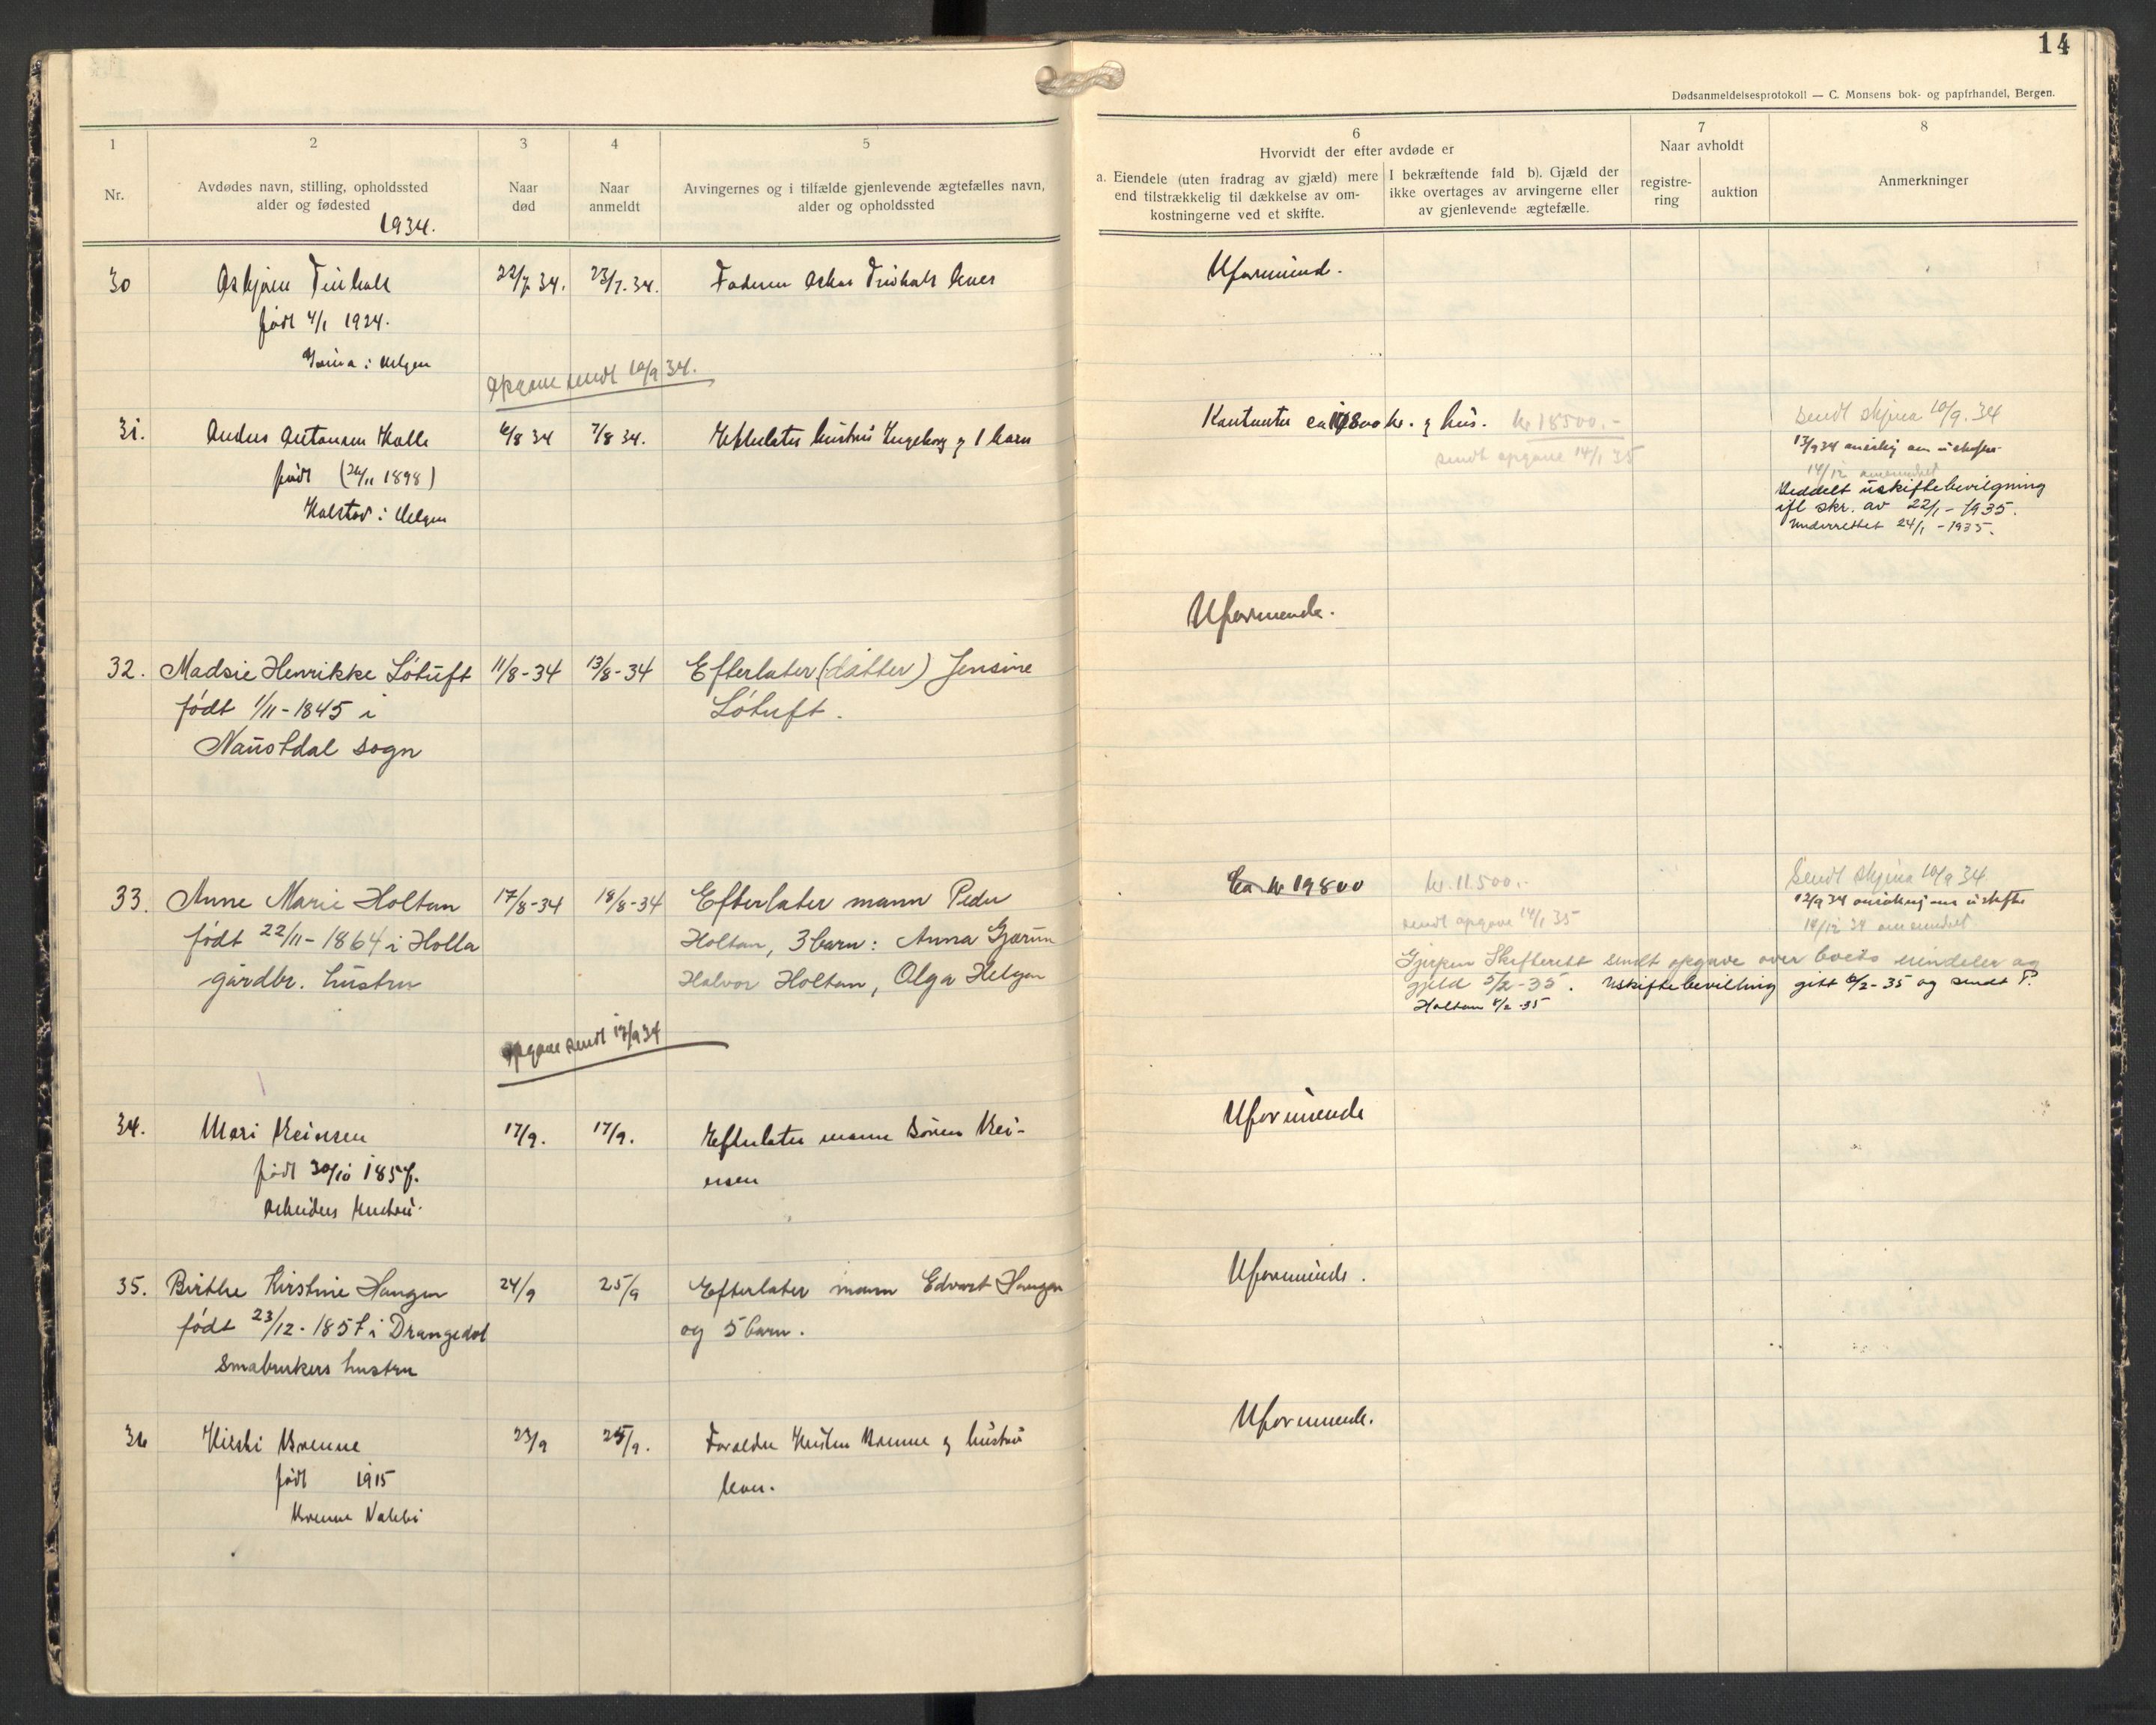 14
Dødsanmeldelsesprotokoll — C. Monsens bok- og papirhandel, Bergen.
1
Nr.
2
Avdødes navn, stilling, opholdssted
alder og fødested
1934.
3
Naar
død
4
Naar
anmeldt
5
Arvingernes og i tilfælde gjenlevende ægtefælles navn,
alder og opholdssted
6
Hvorvidt der efter avdøde er
a. Eiendele (uten fradrag av gjæld) mere
end tilstrækkelig til dækkelse av om-
kostningerne ved et skifte.
I bekræftende fald b). Gjæld der
ikke overtages av arvingerne eller
av gjenlevende ægtefælle.
7
Naar avholdt
registre-
ring
auktion
8
Anmerkninger
30
født 4/1 1924.
22/7 34.
23/7. 34.
Faderen
lever
Uformuend.
opgave sendt 10/9 34.
31.
Anders Antonsen
født (26/11 1898)
i Helgen
6/8 34
7/8 34.
Efterlater hustru Ingeborg og 1 barn
Kontanter ca kr. og hus.
kr 18500.-
sendt opgave 14/1 35
sendt skjema 10/9. 34
13/9 34
14/12
Meddelt uskiftebevilgning
ifl skr. av 22/1 - 1935.
Underrettet 24/1 - 1935.
32.
Madsie Henrikke Løtuft
født 1/11 - 1845 i
Naustdal sogn
11/8-34
13/8-34
Efterlater (datter) Jensine
Løtuft.
Uformuende.
33.
Anne Marie Holtan
født 22/11 - 1864 i Holla
gårdbr. hustru
17/8-34
18/8-34
Efterlater mann Peder
Holtan, 3 barn: Anna Gjærum
Halvor Holtan, Olga Helgen
Ca kr 19800
kr. 11.500.-
sendt opgave 14/1 35
Sendt skjema 10/9 34
12/9 34 om uskifte
14/12 34
Gjerpen Skifterett sendt opgave over boets eiendeler og
gjeld 5/2-35. Uskiftebevilling gitt 6/2-35 og sendt P.
Holtan 8/2-35
opgave sendt 12/9 34
34.
født 30/10 1857.
Arbeiders hustru.
17/9.
17/9.
Efterlater mann Søren
Uformuende
35.
Birthe Kirstine Haugen
født 23/12 - 1857 i Drangedal
Småbrukers hustru
24/9
25/9
Efterlater mann Edvart Haugen
og 5 barn.
Uformuende.
36
født 1915
23/9
25/9.
Foreldre og hustru
lever.
Uformuende.